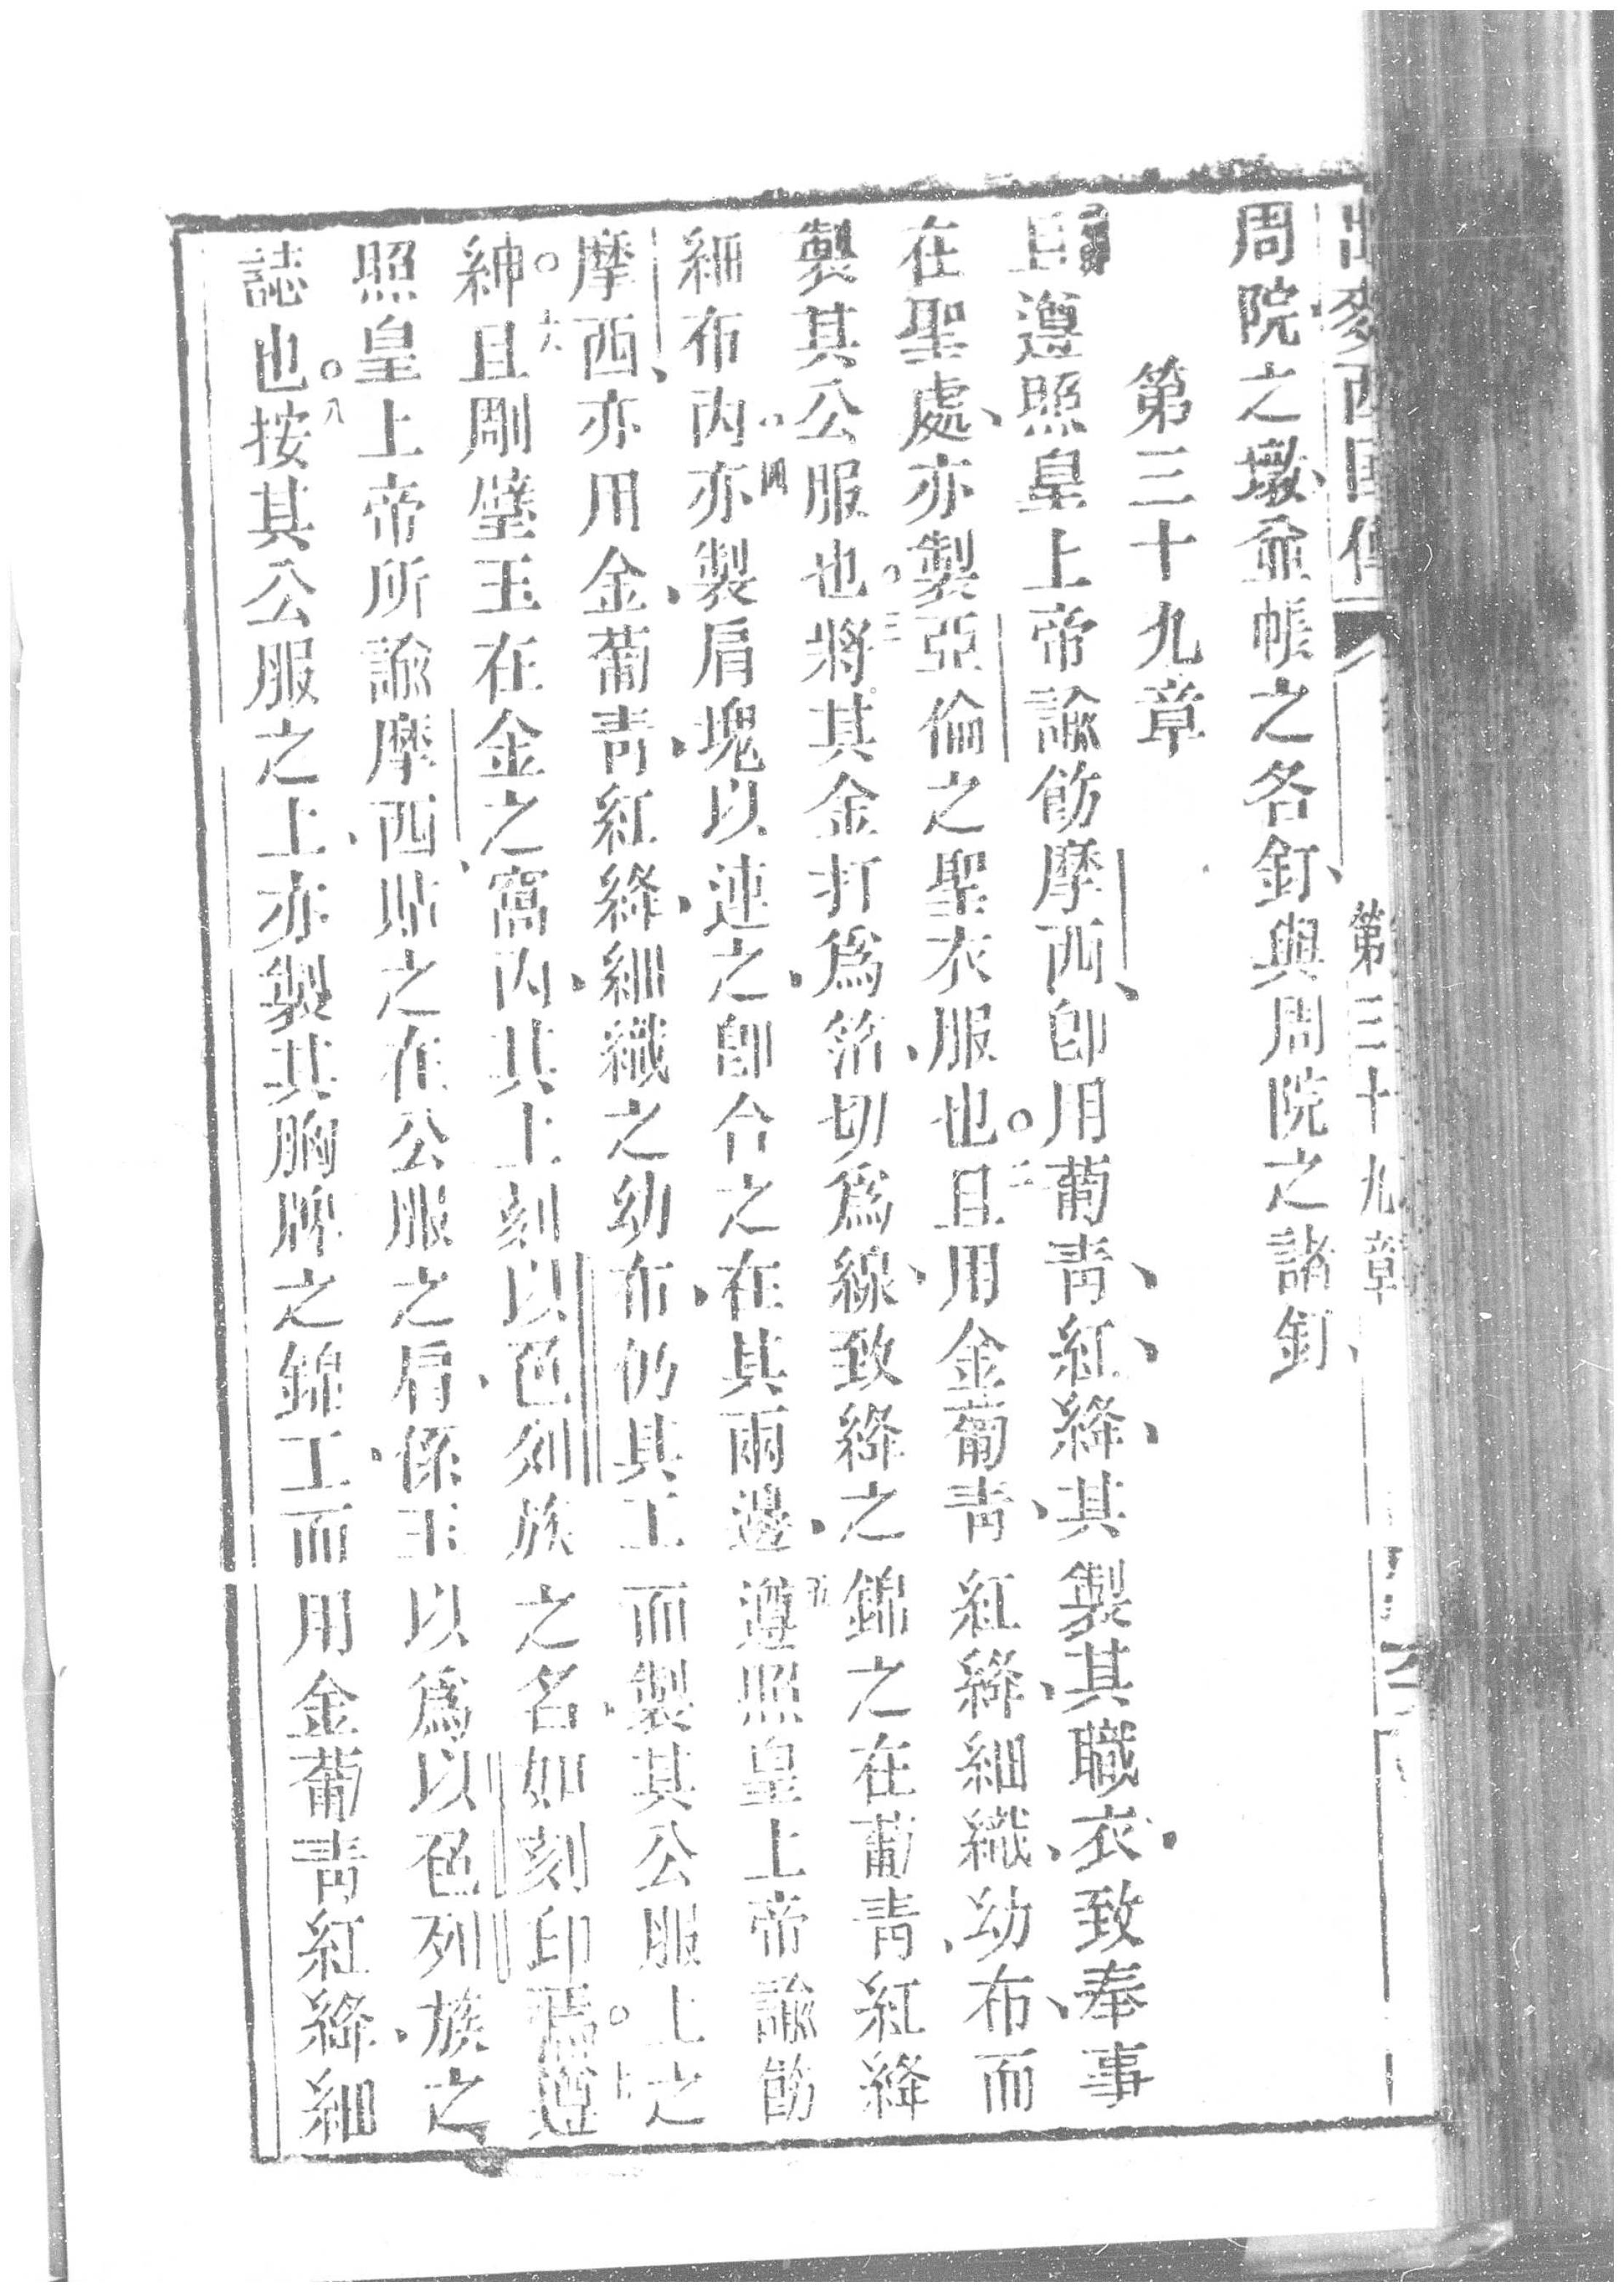 出麥西國傳 第三十九章
周院之墩、並帳之各釘、與周院之諸釘、
第三十九章
且遵照皇上帝諭飭摩西、即用葡青、紅、絳、其製其職衣、致奉事
在聖處、亦製亞倫之聖衣服也。二且用金葡青、紅絳、細織、幼布、而
製其公服也。三將其金打爲箔、切爲線、致絳之錦之在葡青、紅絳
細布內。四亦製肩塊、以連之、即合之在其兩邊、五遵照皇上帝諭飭
摩西、亦用金、葡青、紅絳、細織之幼布、仍其工而製其公服上之
紳。六且剛璧玉在金之窩內、其上刻以色列族之名、如刻印焉。七遵
照皇上帝所諭摩西、貼之在公服之肩、係玉以爲以色列族之
誌也。八按其公服之上、亦製其胸牌之錦工、而用金葡青紅絳、細